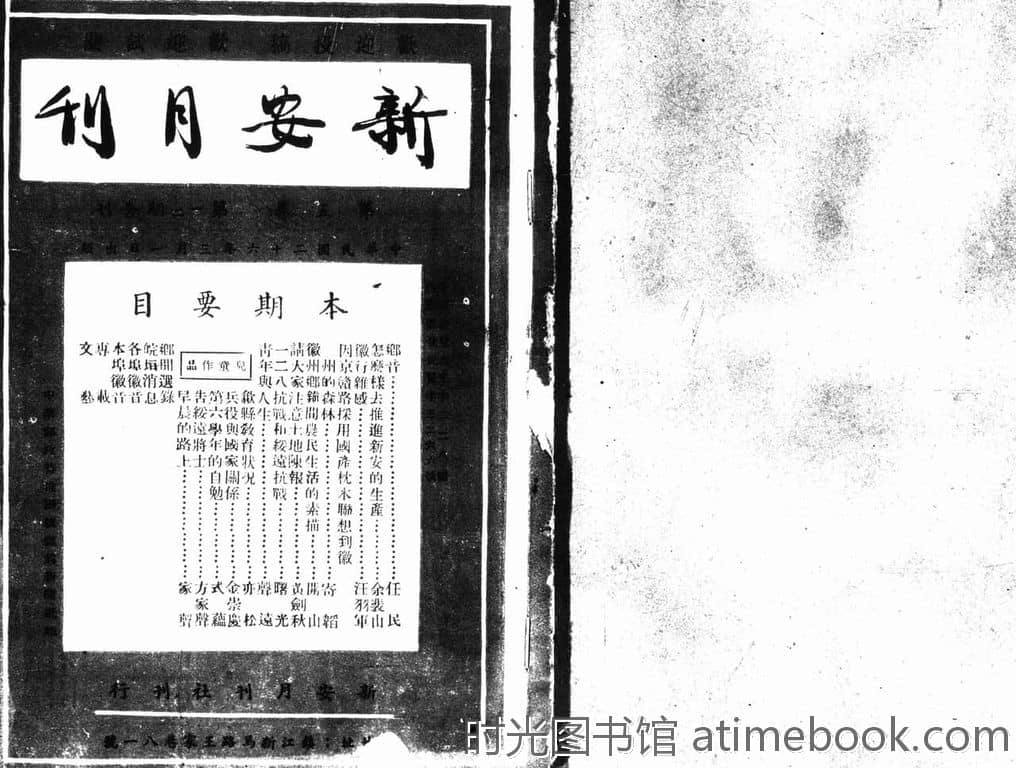 歡迎投稿 歡迎試閱
新安月刊
第五卷 第一二期合刊
中華民國二十六年三月一日出版
本期要目
鄉音……任民
怎麽樣去推進新安的生產……余裴山
徽行雜感……汪羽軍
因京贛路採用國產枕木聯想到徽
州的森林……寄韜
徽州鄉鎮間農民生活的素描……開山
請大家注意土地陳報……黃劍秋
一二八抗戰和綏遠抗戰……曙光
靑年與人生……聲遠
兒童作品
歙縣敎育狀况……亦松
兵役與國家關係……金崇慶
第六學年的自勉……式蘊
吿綏遠將士……方家聲
早晨的路上……家聲
鄉聞選錄
皖垣消息
各埠徽音
本埠徽音
專載
文藝
新安月刊社刊行
時光图书馆 atimebook.com